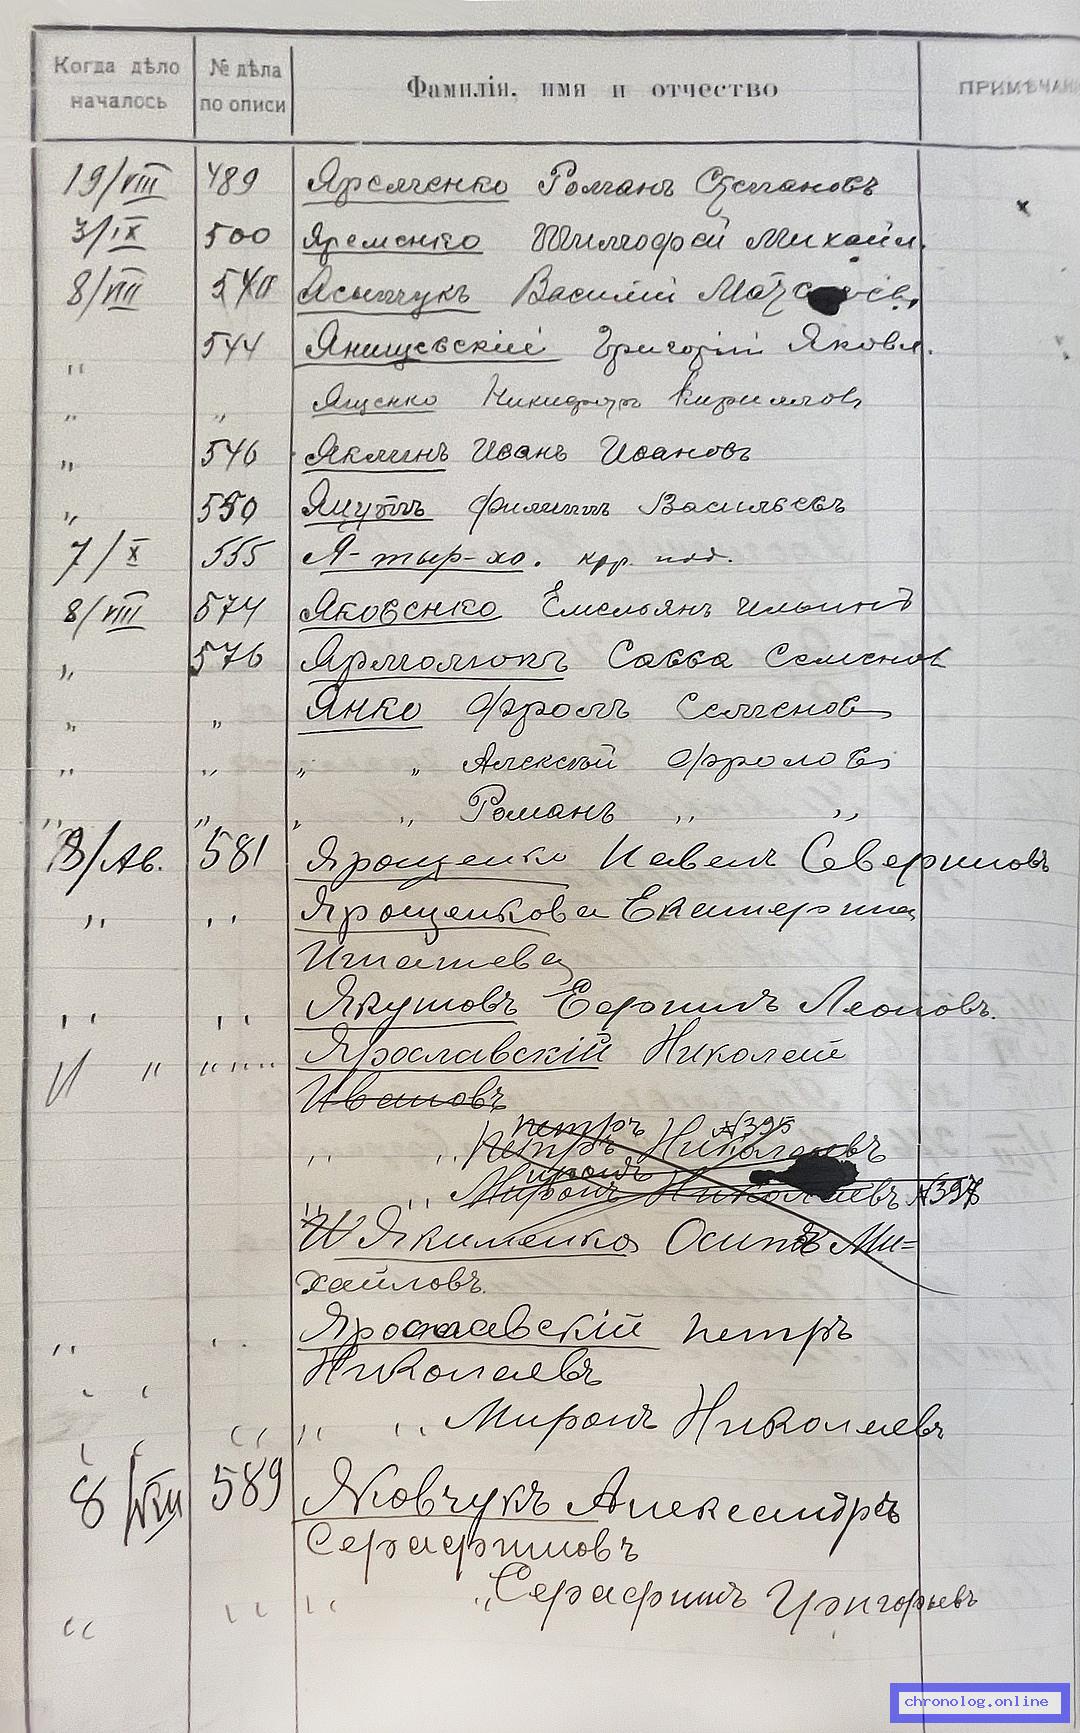 Когда дѣло началось № дѣла по описи Фамилія, имя и отчество ПРИМѢЧАН
19/VIII 489 Яремченко Романъ Степановъ
3/IX 500 Яременко Тимофей Михайл.
8/VIII 540 Асынчукъ Василій
„ 544 Янищевскій Григорій Яковл.
„ „ Ященко Никифоръ Кириллов
„ 546 Яклинъ Иванъ Ивановъ
„ 550 Яцутъ Филиппъ Васильевъ
7/X 555 Я-тыр-хо. кр. под.
8/VIII 574 Яковенко Емельянъ Ильинъ
„ 576 Ярмолюкъ Савва Семенов
„ „ Янко Фролъ Семенов
„ „ „ „ Алексѣй Фролов
„ „ „ „ Романъ „ „
8/Ав. 581 Ярощенко Павелъ Севериновъ
„ „ Ярощенкова Екатерина
Игнатьева
„ „ Якушовъ Ефримъ Леоновъ.
„ „ „ „ Ярославскій Николай
Ивановъ
петръ №395
„ „ Петръ Николаевъ
Миронъ
„ „ Миронъ Николаевъ №397
Якименко Осипъ Ми=
хайловъ.
„ „ Ярославскій Петръ
Николаевъ
„ „ „ „ Миронъ Николаевъ
8/VIII 589 Яковчукъ Александръ
Серафимовъ
„ „ „ „ Серафимъ Григорьевъ
chronolog.online